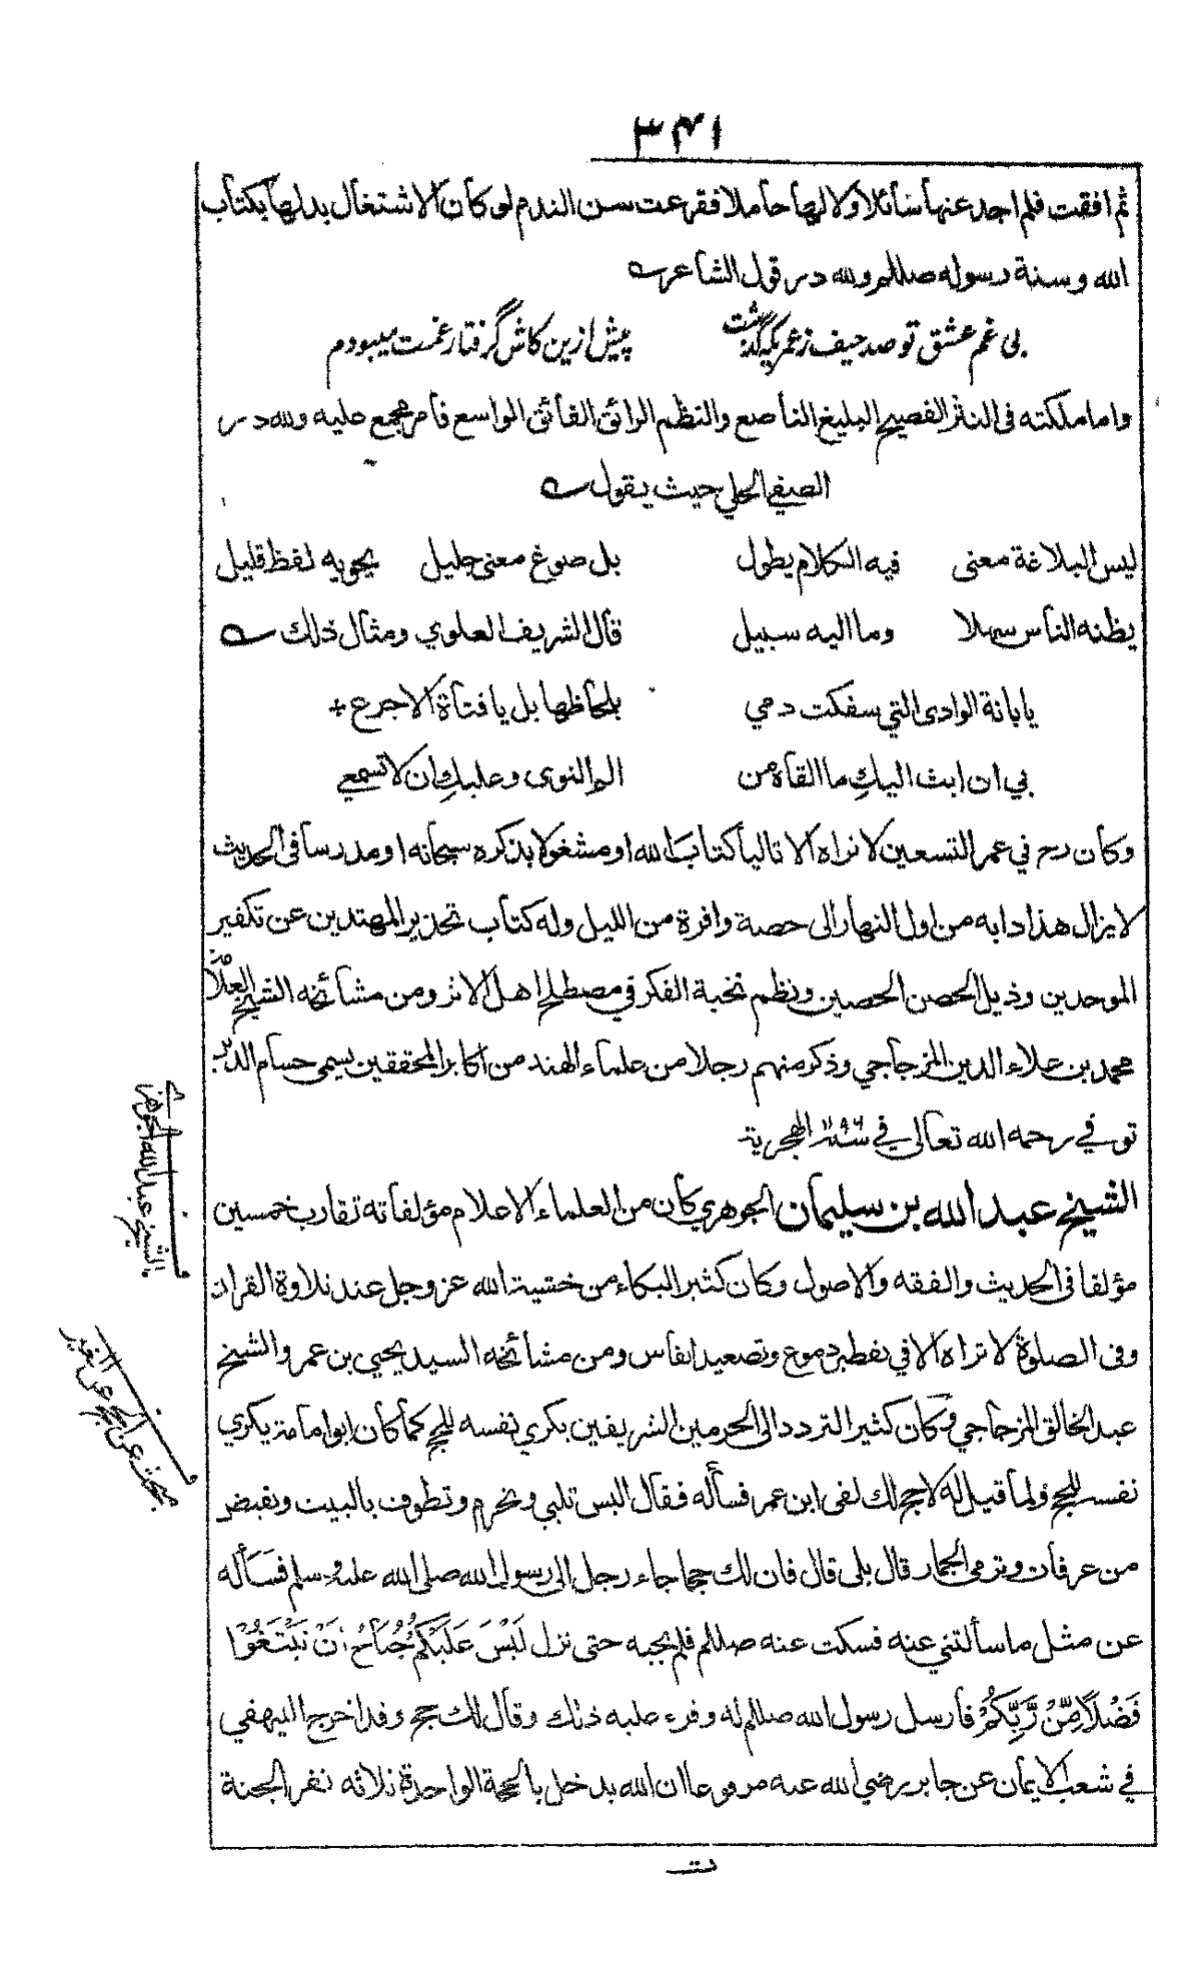 ٣٤١
ثم افقت فلم اجد عنها سائلا ولا اليها حاملا فقرعت سن الندم لو كان الاشتغال بدلها بكتاب
الله وسنة رسوله صللم ولله در قول الشاعر
بی غم عشق تو صد حیف ز عمریکه گذشت پیش ازین کاش گرفتار غمت میبودم
واما ملكته فى النثر الفصيح البليغ الناصع والنظم الرائق الفائق الواسع فامر مجمع عليه ولله در
الصفي الحلي حيث يقول
ليس البلاغة معنى فيه الكلام يطول بل صوغ معنى جليل يحويه لفظ قليل
يظنه الناس سهلا وما اليه سبيل قال الشريف العلوي ومثال ذلك
يا بانة الوادى التي سفكت دمي بلحاظها بل يا فتاة الاجرع
بي ان ابث اليكِ ما القاه من الم النوى وعليكِ ان لا تسمعي
وكان رح في عمر التسعين لا نراه الا تاليا كتاب الله او مشغولا بذكره سبحانه او مدرسا فى الحديث
لا يزال هذا دابه من اول النهار الى حصة وافرة من الليل وله كتاب تحذير المهتدين عن تكفير
الموحدين وذيل الحصن الحصين ونظم نخبة الفكر في مصطلح اهل الاثر ومن مشائخه الشيخ العلامة
محمد بن علاء الدين المزجاجي وذكر منهم رجلا من علماء الهند من اكابر المحققين يسمى حسام الدين
توفي رحمه الله تعالى في سنة الهجرية
الشيخ عبد الله بن سليمان الجوهري كان من العلماء الاعلام مؤلفاته تقارب خمسين
مؤلفا فى الحديث والفقه والاصول وكان كثير البكاء من خشية الله عز وجل عند تلاوة القران
وفى الصلوة لا تراه الا في تقطير دموع وتصعيد انفاس ومن مشائخه السيد يحيى بن عمر والشيخ
عبد الخالق المزجاجي وكان كثير التردد الى الحرمين الشريفين يكري نفسه للحج كما كان ابو امامة يكري
نفسه للحج ولما قيل له لا حج لك لقى ابن عمر فسأله فقال اليس تلبي وتحرم وتطوف بالبيت وتفيض
من عرفات وترمي الجمار قال بلى قال فان لك حجا جاء رجل الى رسول الله صلى الله عليه وسلم فسأله
عن مثل ما سألتني عنه فسكت عنه صللم فلم يجبه حتى نزل لَيْسَ عَلَيْكُمْ جُنَاحٌ اَنْ تَبْتَغُوْا
فَضْلًا مِّنْ رَّبِّكُمْ فارسل رسول الله صللم له وقرء عليه ذلك وقال لك حج وقد اخرج البيهقي
في شعب الايمان عن جابر رضي الله عنه مرفوعا ان الله يدخل بالحجة الواحدة ثلاثة نفر الجنة
الشيخ عبد الله الجوهري
بحث عن الحج عن الغير